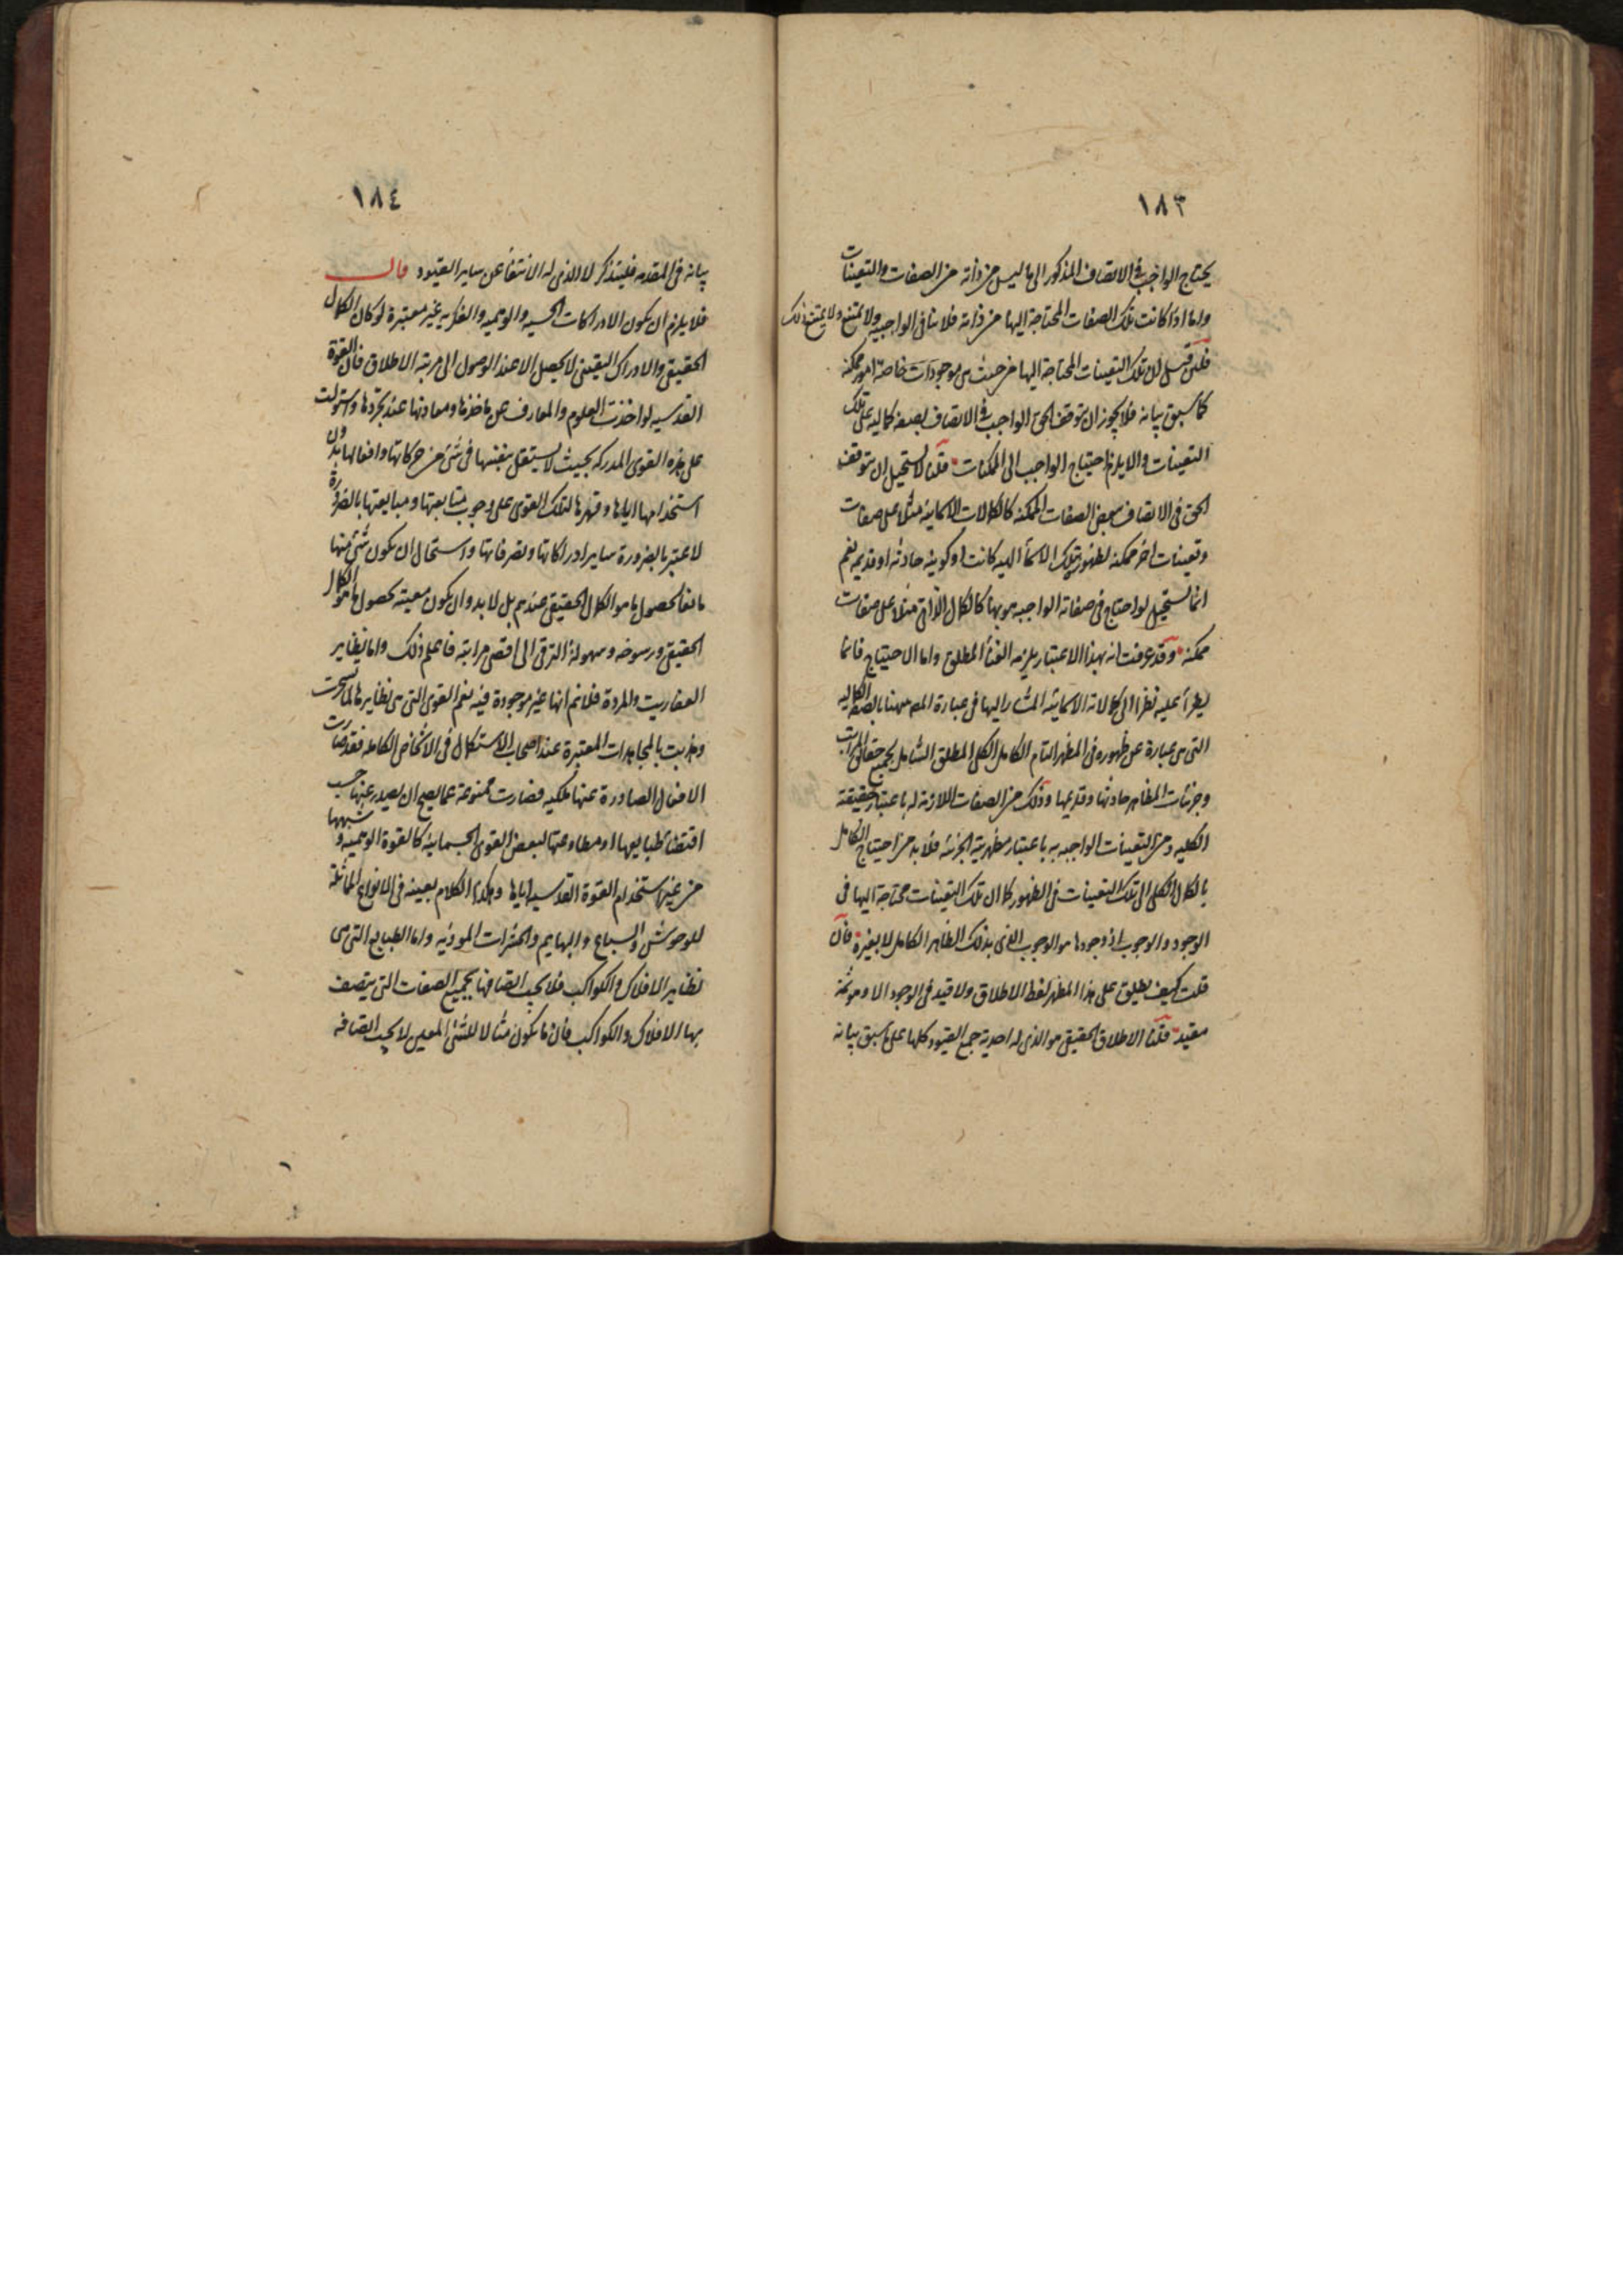 ١٨٣
يحتاج الواجب فى الاتصاف المذكور الى ما ليس من ذاته من الصفات والتعينات
واما اذا كانت تلك الصفات المحتاجة اليها من ذاته فلا ينافى الواجبيه ولا يمتنع ذلك
فلئن قيل ان تلك التعينات المحتاجة اليها من حيث هى موجودات خاصة امور ممكنه
كما سبق بيانه فلا يجوز ان يتوقف الحق الواجب فى الاتصاف بصفه كماليه على تلك
التعينات والا يلزم احتياج الواجب الى الممكنات قلنا لا يستحيل ان يتوقف
الحق فى الاتصاف ببعض الصفات الممكنه كالكالات الاسمائية مثلا على صفات
وتعينات اخر ممكنه لظهور تلك الاسمأ الهيه كانت او كونية حادثه او قديمه نعم
انما يستحيل لو احتاج فى صفاته الواجبه هو بها كالكمال الذاتى مثلا على صفات
ممكنه وقد عرفت انه بهذا الاعتبار يلزمه الغنأ المطلق واما الاحتياج فانما
يطرأ عليه نظرا الى كمالاته الاسمائية المشار اليها فى عبارة المص ههنا بالصفة الكماليه
التى هى عبارة عن ظهوره فى المظهر التام الكامل الكلى المطلق الشامل لجميع حقائق المراتب
وجزئيات المظاهر حادثها وقديمها وذلك من الصفات اللازمة له باعتبار حقيقته
الكليه ومن التعينات الواجبه به باعتبار مظهريته الجزئيه فلا بد من احتياج الكامل
بالكمال الكلى الى تلك التعينات فى الظهور كما ان تلك التعينات محتاجة اليها فى
الوجود والوجوب اذ وجودها هو الوجوب الذى بذلك الظاهر الكامل لا بغيره فان
قلت كيف يطلق على هذا المظهر لفظ الاطلاق ولا قيد فى الوجود الا وهو ثمة
مقيد قلنا الاطلاق الحقيقى هو الذى له احدية جمع القيود كلها على ما سبق بيانه
١٨٤
بيانه فى المقدمه فليتذكر لا الذى له الانتفأ عن ساير القيود قال
فلا يلزم ان يكون الادراكات الحسيه والوهميه والفكريه غير معتبرة لو كان الكمال
الحقيقى والادراك اليقينى لا يحصل الا عند الوصول الى مرتبة الاطلاق فان القوة
القدسيه لو اخذت العلوم والمعارف عن ماخذها ومعادنها عند تجردها واستولت
على هذه القوى المدركه بحيث لا يستقل بنفسها فى شئ من حركاتها وافعالها بدون
استخدامها اياها وقهرها لتلك القوى على وجوب متابعتها ومبايعتها بالضرورة
لاعتبر بالضرورة ساير ادراكاتها وتصرفاتها واستحال ان يكون شئ منها
مانعا لحصول ما هو الكمال الحقيقى عندهم بل لا بد وان يكون معينه لحصول ما هو الكمال
الحقيقى ورسوخه وسهولة الترقى الى اقصى مراتبه فاعلم ذلك واما نظاير
العفاريت والمردة فلا نم انها غير موجودة فيه نعم القوى التى هى نظايرها لما تسخرت
وهذبت بالمجاهدات المعتبرة عند اصحاب الاستكمال فى الاشخاص الكامله فقد صارت
الافعال الصادرة عنها ملكيه فصارت ممنوعة عما يصح ان يصدر عنها حسب
اقتضأ طبايعها او مطاوعتها لبعض القوى الجسمانية كالقوة الوهميه وشبهها
من غير استخدام القوة القدسيه اياها وهكذا الكلام بعينه فى الانواع المماثلة
للوحوش والسباع والبهايم والحشرات الموذيه واما الطبايع التى هى
نظاير الافلاك والكواكب فلا يجب اتصافها بجميع الصفات التى يتصف
بها الافلاك والكواكب فان ما يكون مثالا للشئ المعين لا يجب اتصافه